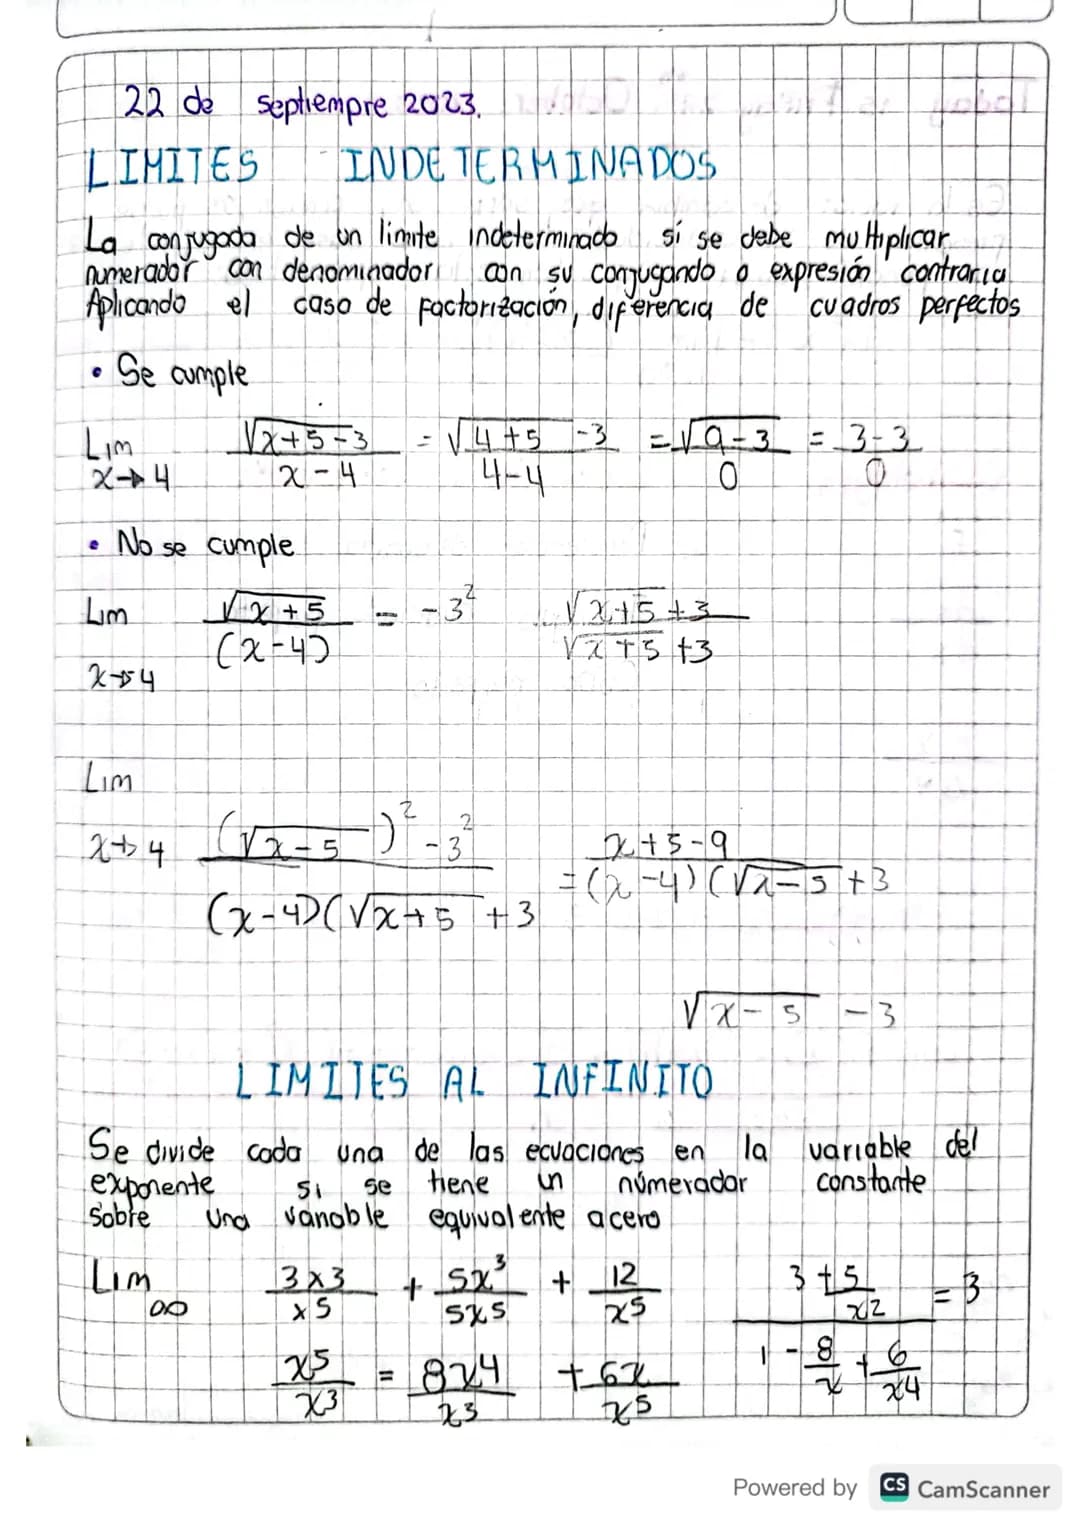 22 de septiempre 2023.
LIMITES INDETERMINADOS
La conjugada de un limite indeterminado sí se debe multiplicar
numerador con denominador con su conjugando o expresión contraria
Aplicando el caso de factorización, diferencia de cuadros perfectos
• Se cumple
Lim x→4 √x+5-3 / x-4 = √4+5 -3 / 4-4 = √9-3 / 0 = 3-3 / 0
• No se cumple
Lim x→4 √x+5 / (x-4) = -3² √x+5+3 / √x+5 +3
Lim
x→4 (√x-5)² -3² / (x-4)(√x+5 +3 = x+5-9 / (x-4)(√x-5+3
√x-5 -3
LIMITES AL INFINITO
Se divide cada una de las ecuaciones en la variable del
exponente si se tiene un númerador constante
Sobre una variable equivalente a cero
Lim ∞ 3x3 / x5 + 5x³ / 5x5 + 12 / x5
x5 / x3 = 8x4 / x3 + 6x / x5
3+5 / x2 / 1 - 8 / x + 6 / x4 = 3
Powered by CS CamScanner